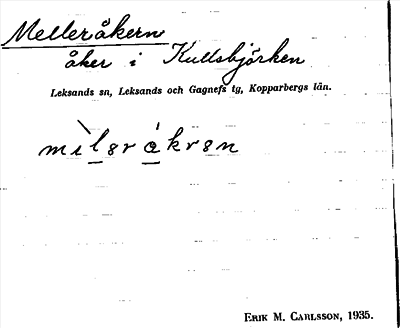 Melleråkern
åker i Kullsbjörken
Leksands sn, Leksands och Gagnefs tg, Kopparbergs län.
mìlsråkrsn
ERIK M. CARLSSON, 1935.